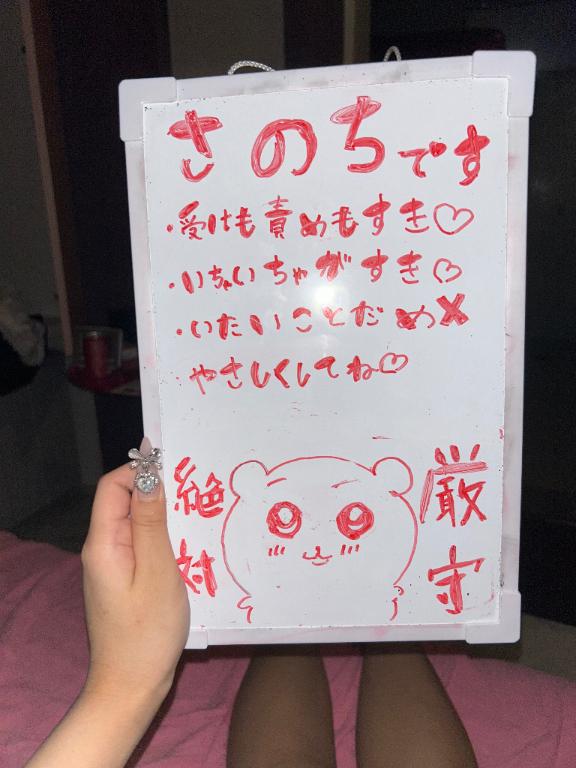 さのちです
・受けも責めもすき♡
・いちゃいちゃがすき♡
・いたいことだめ✖
やさしくしてね♡
絶対
厳守